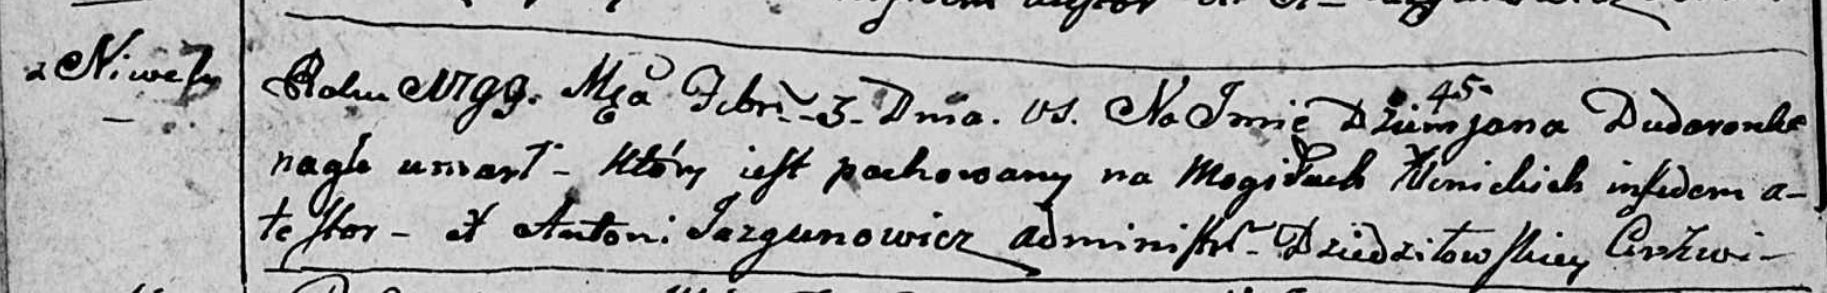 z Niwek
Roku 1799. Mca Febr. 3. Dnia. vs. Na Imie Dziemjana 45. Dudaronka
nagle umarł - który jest pochowany na Mogiłach infidem a-
testor - X Antoni Jazgunowicz administr. Dziedziłowskiey Cerkwi -